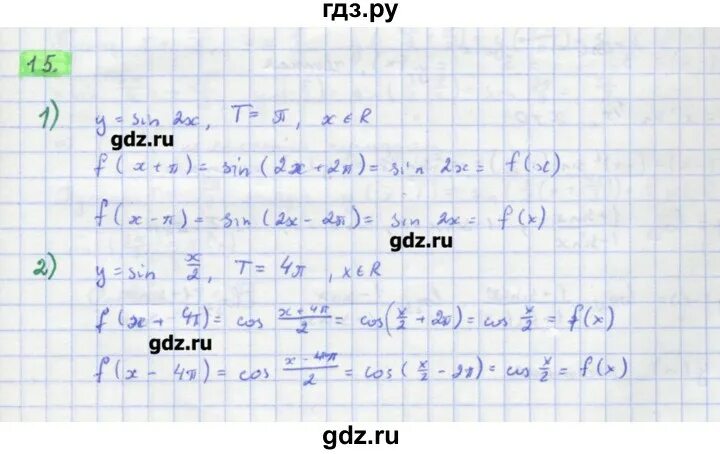 гдз.ру
15.
1) y = sin 2x, T = π, x ∈ R
gdz.ru
f(x+π) = sin(2x+2π) = sin 2x = f(x)
f(x-π) = sin(2x-2π) = sin 2x = f(x)
gdz.ru
2) y = sin x/2, T = 4π, x ∈ R
f(x+4π) = cos (x+4π)/2 = cos(x/2 + 2π) = cos x/2 = f(x)
gdz.ru
f(x - 4π) = cos (x-4π)/2 = cos(x/2 - 2π) = cos x/2 = f(x)
gdz.ru